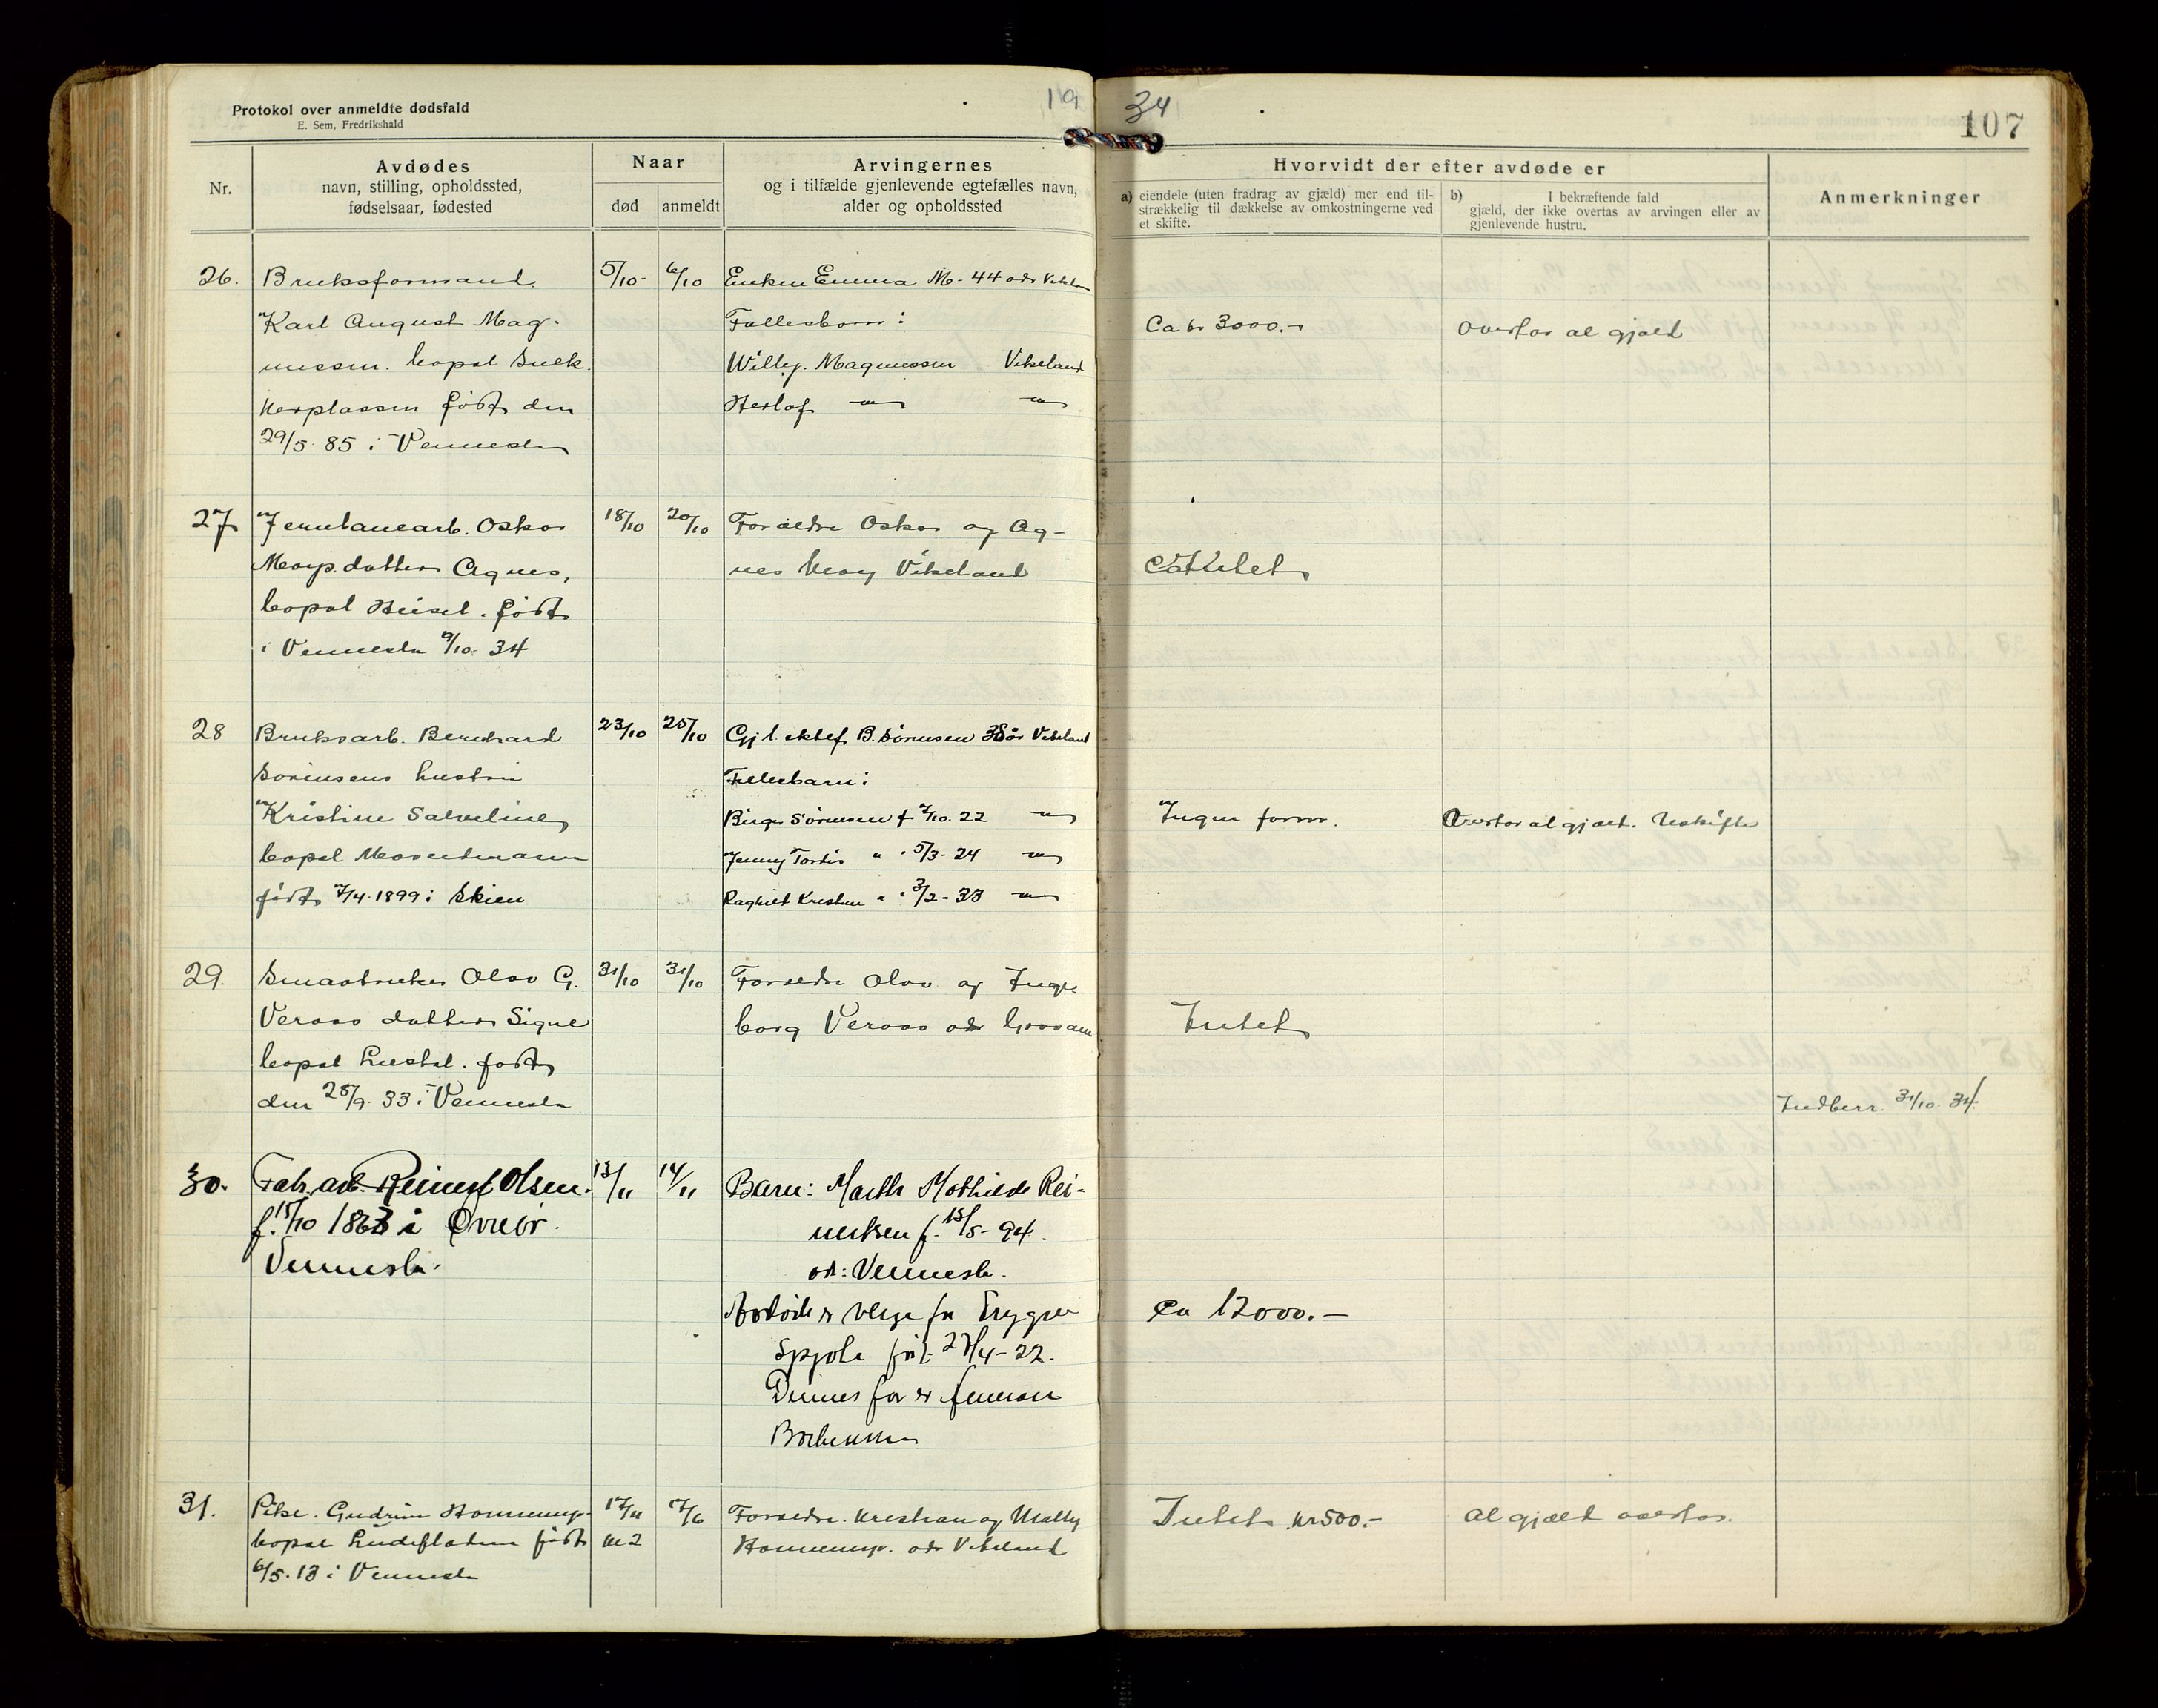 Protokol over anmeldte dødsfald
E. Sem, Fredrikshald
19 34
107
Nr.
Avdødes
navn, stilling, opholdssted,
fødselsaar, fødested
Naar
død
anmeldt
Arvingernes
og i tilfælde gjenlevende egtefælles navn,
alder og opholdssted
Hvorvidt der efter avdøde er
a) eiendele (uten fradrag av gjæld) mer end til-
strækkelig til dækkelse av omkostningerne ved
et skifte.
b) I bekræftende fald
gjæld, der ikke overtas av arvingen eller av
gjenlevende hustru.
Anmerkninger
26.
Bruksformand
Karl August Mag-
nussen. bopæl
født den
29/5 85 i Vennesla
5/10
6/10
Enken Emma M- 44
Fellesbarn:
Willy. Magnussen Vikeland
Herlof
Ca kr 3000.-
overtar al gjæld
27
Jernbanearb. Oskar
datter Agnes,
bopæl Heisel. født
i Vennesla 9/10 34
18/10
20/10
Foræeldre Oskar og Ag-
nes Vikeland
28
Bruksarb. Bernhard
Sørensens hustru
Kristine Salveline
bopæl Mosentmoen
født 7/4 1899 i Skien
23/10
25/10
Gj l. ektef B. Sørensen 38 år Vikeland
Fellesbarn:
Birger Sørensen f 7/10. 22
Jenny Tordis " " 5/3- 24
Ragnhild Kristine " " 3/2- 33
Ingen form.
Overtar al gjæld. Uskifte
29.
Smaabruker Olav G.
Veraas datter Signe
bopæl født
den 28/9. 33 i Vennesla
31/10
31/10
Foræeldre Olav og Inge-
borg Veraas adr
Intet
Indberr. 31/10. 34.
30.
Fab. arb. Reinert Olsen.
f. 15/10 1863 i Øvrebø.
Vennesla.
13/11
14/11
Barn: Marth Mathilde Rei-
nertsen f. 15/5- 94.
adr: Vennesla.
Avdøde er verge for Trygve
født 27/4- 22.
Dennes far er
Ca 12000.-
31.
Pike. Gudrun
bopæl født
6/5. 13 i Vennesla
17/11
17/6
Foræeldre. Kristian og Mally
adr Vikeland
Intet kr 500.-
al gjæld overtar.